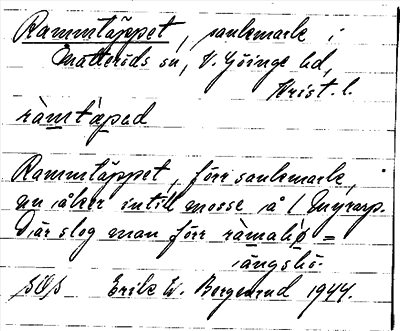 Rammtäppet, sankmark i
Matteröds sn, V. Göinge hd,
Krist. l.
ràmtæpəd
Rammtäppet, förr sankmark,
nu åker intill mosse å 1 Gnyrarp.
Där slog man förr ràmahø =
ängshö.
Erik W. Bergerund 1944.